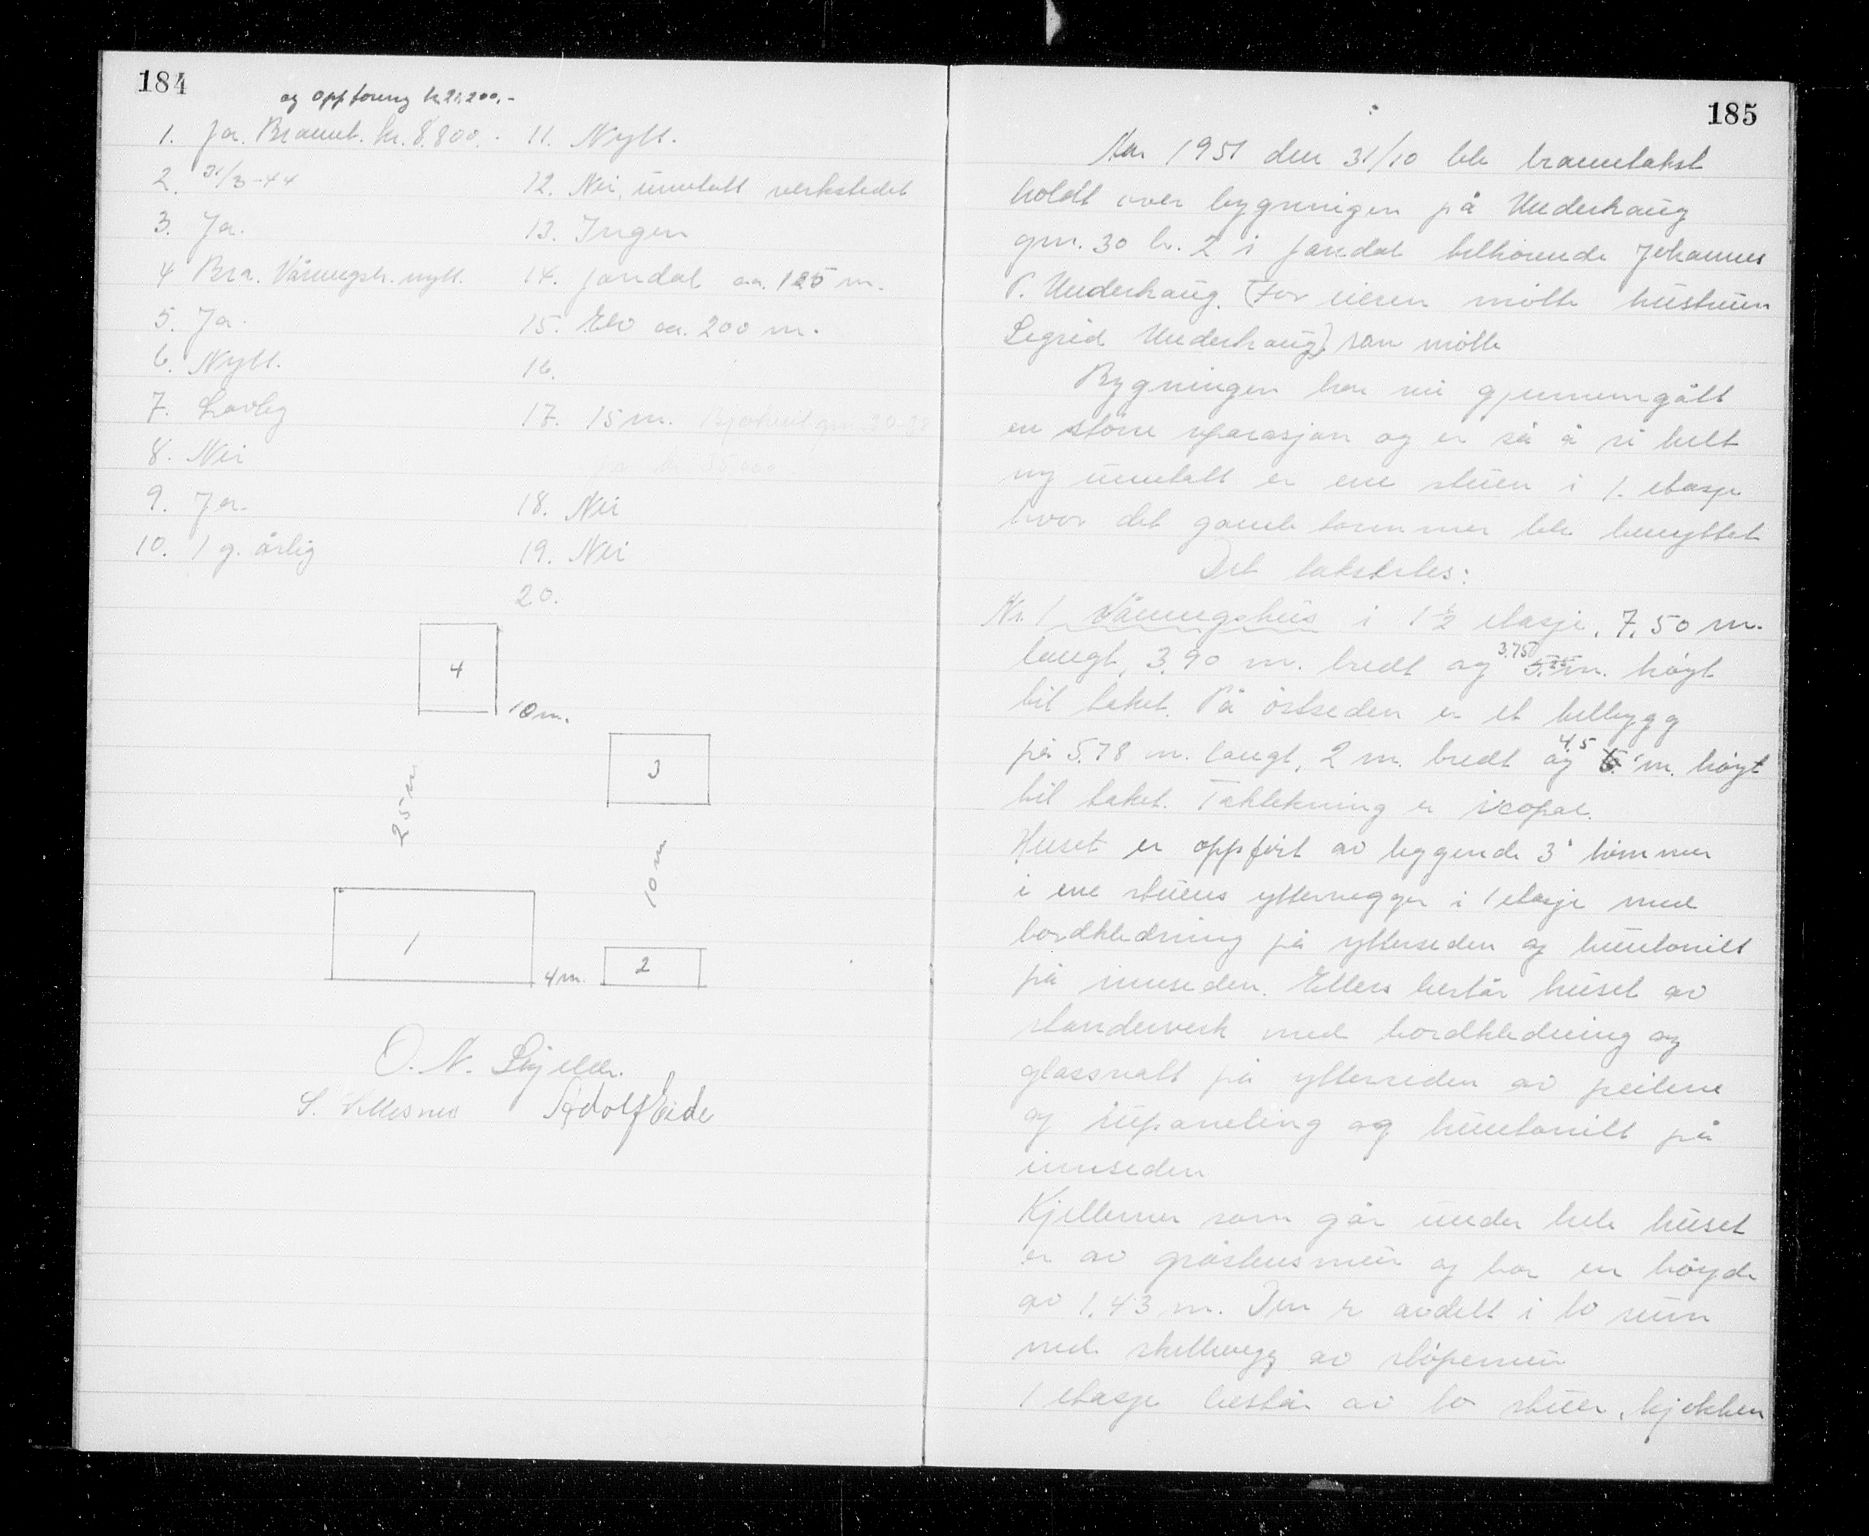 184
og oppforing kr 21200,-
1. Ja. Brannt. kr. 8.800.-
2. 31/3-44
3. Ja.
4 Bra. Våningsh. nytt.
5. Ja.
6. Nytt.
7. Lovleg
8. Nei
9. Ja.
10. 1 g. årlig
11. Nytt.
12. Nei, unntatt verkstedet
13. Ingen
14. Jondal ca. 125 m.
15. Elv ca. 200 m.
16.
17. 15 m.
18. Nei
19. Nei
20.
4
10 m.
3
25 m
10 m
1
4 m.
2
O. N. Skjelde.
S. Adolf Eide
185
Aar 1951 den 31/10 ble branntakst
holdt over bygningen på Underhaug
gnr. 30 br. 2 i Jondal tilhørende Johannes
P. Underhaug. (For eieren møtte hustruen
Sigrid Underhaug) som møtte
Bygningen har nu gjennemgått
en større reparasjon og er så å si helt
ny unntatt er ene stuen i 1. etasje
hvor det gamle tømmer ble benyttet
Det taksteles:
Nr. 1 Våningshus i 1 1/2 etasje, 7,50 m.
langt, 3,90 m. bredt og 3.75 m. høyt
til taket. På østsiden er et tilbygg
på 5.78 m. langt, 2 m. bredt og 4,5 m. høyt
til taket. Taktekning er icopal.
Huset er oppført av liggende 3" tømmer
i ene stuens yttervegger i 1 etasje med
bordkledning på yttersiden og huntonitt
på innsiden. Ellers består huset av
standerverk med bordkledning og
glassvatt på yttersiden av peilene
og rupaneling og huntonitt på
innsiden
Kjelleren som går under hele huset
er av gråstensmur og har en høyde
av 1,43 m. Den er avdelt i to rum
med skillevegg av støpemur
1 etasje består av to stuer, kjøkken